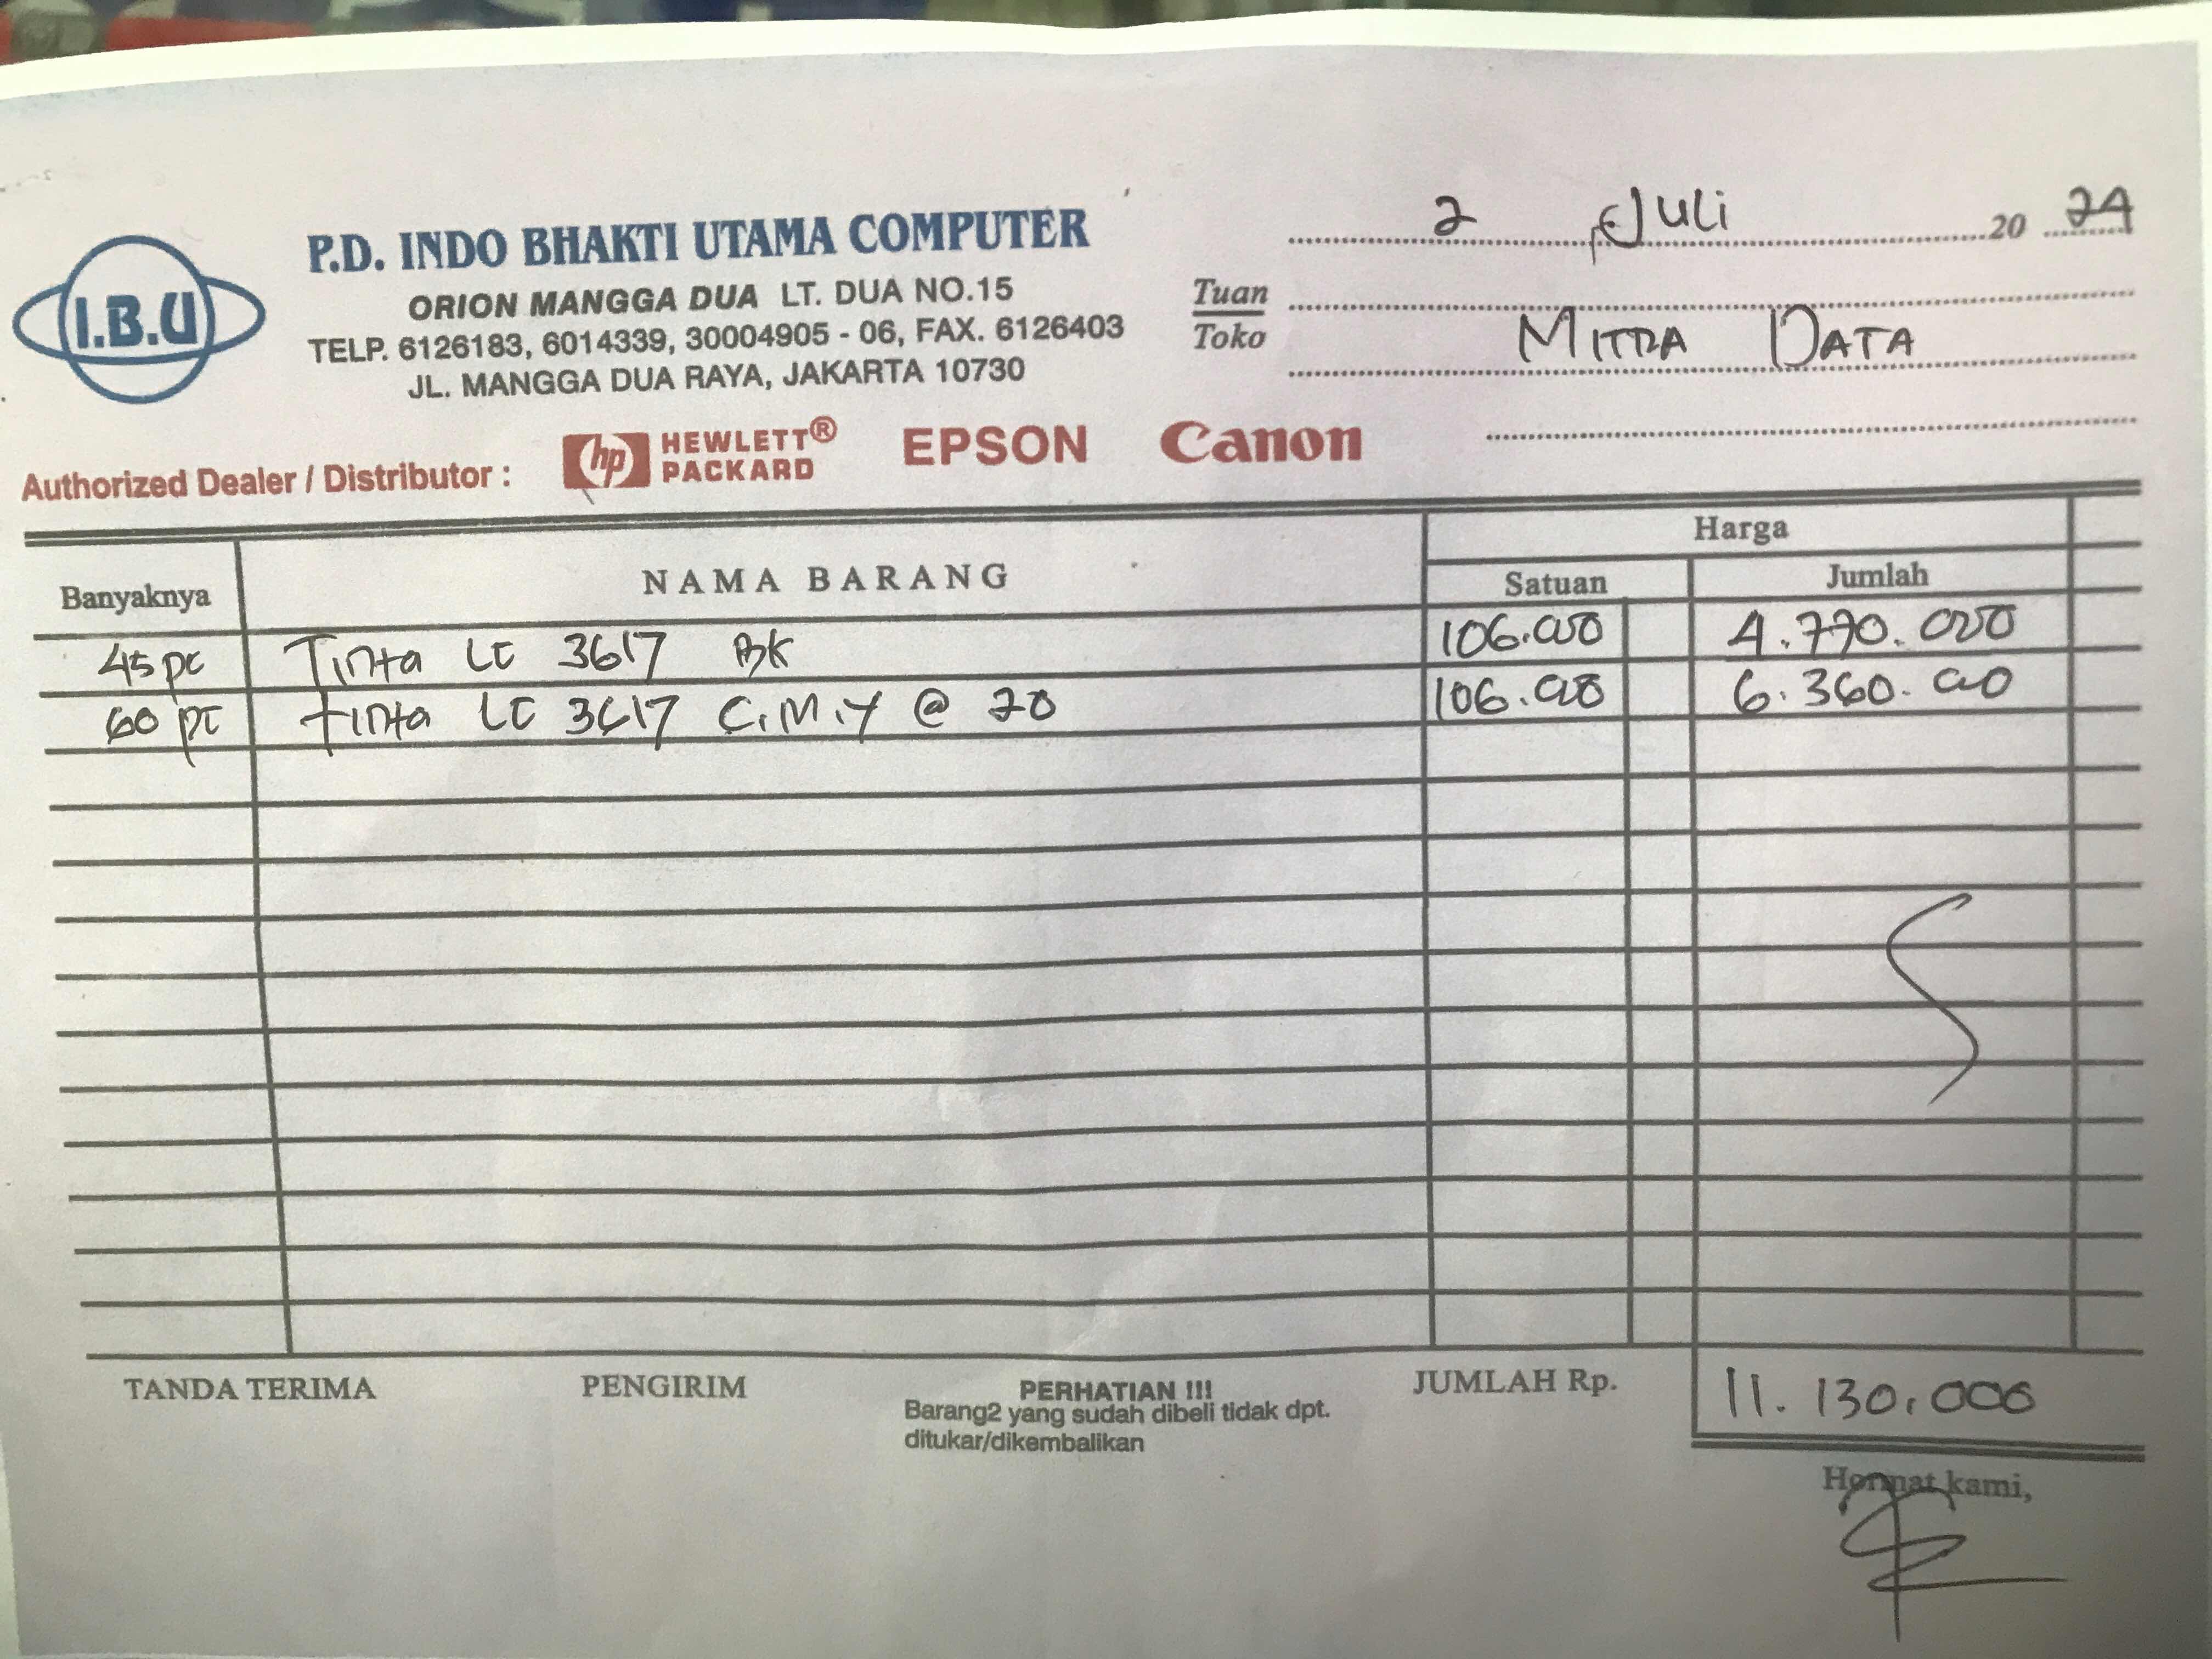 I.B.U
P.D. INDO BHAKTI UTAMA COMPUTER
ORION MANGGA DUA LT. DUA NO.15
TELP. 6126183, 6014339, 30004905 - 06, FAX. 6126403
JL. MANGGA DUA RAYA, JAKARTA 10730
2 Juli 20 24
Tuan
Toko
MITRA DATA
Authorized Dealer / Distributor : hp HEWLETT® PACKARD EPSON Canon
Banyaknya NAMA BARANG Harga
Satuan Jumlah
45 pc Tinta LC 3617 BK 106.000 4.770.000
60 pc tinta LC 3617 C.M.Y @ 20 106.000 6.360.000
TANDA TERIMA PENGIRIM PERHATIAN !!! JUMLAH Rp. 11.130.000
Barang2 yang sudah dibeli tidak dpt.
ditukar/dikembalikan
Hormat kami,